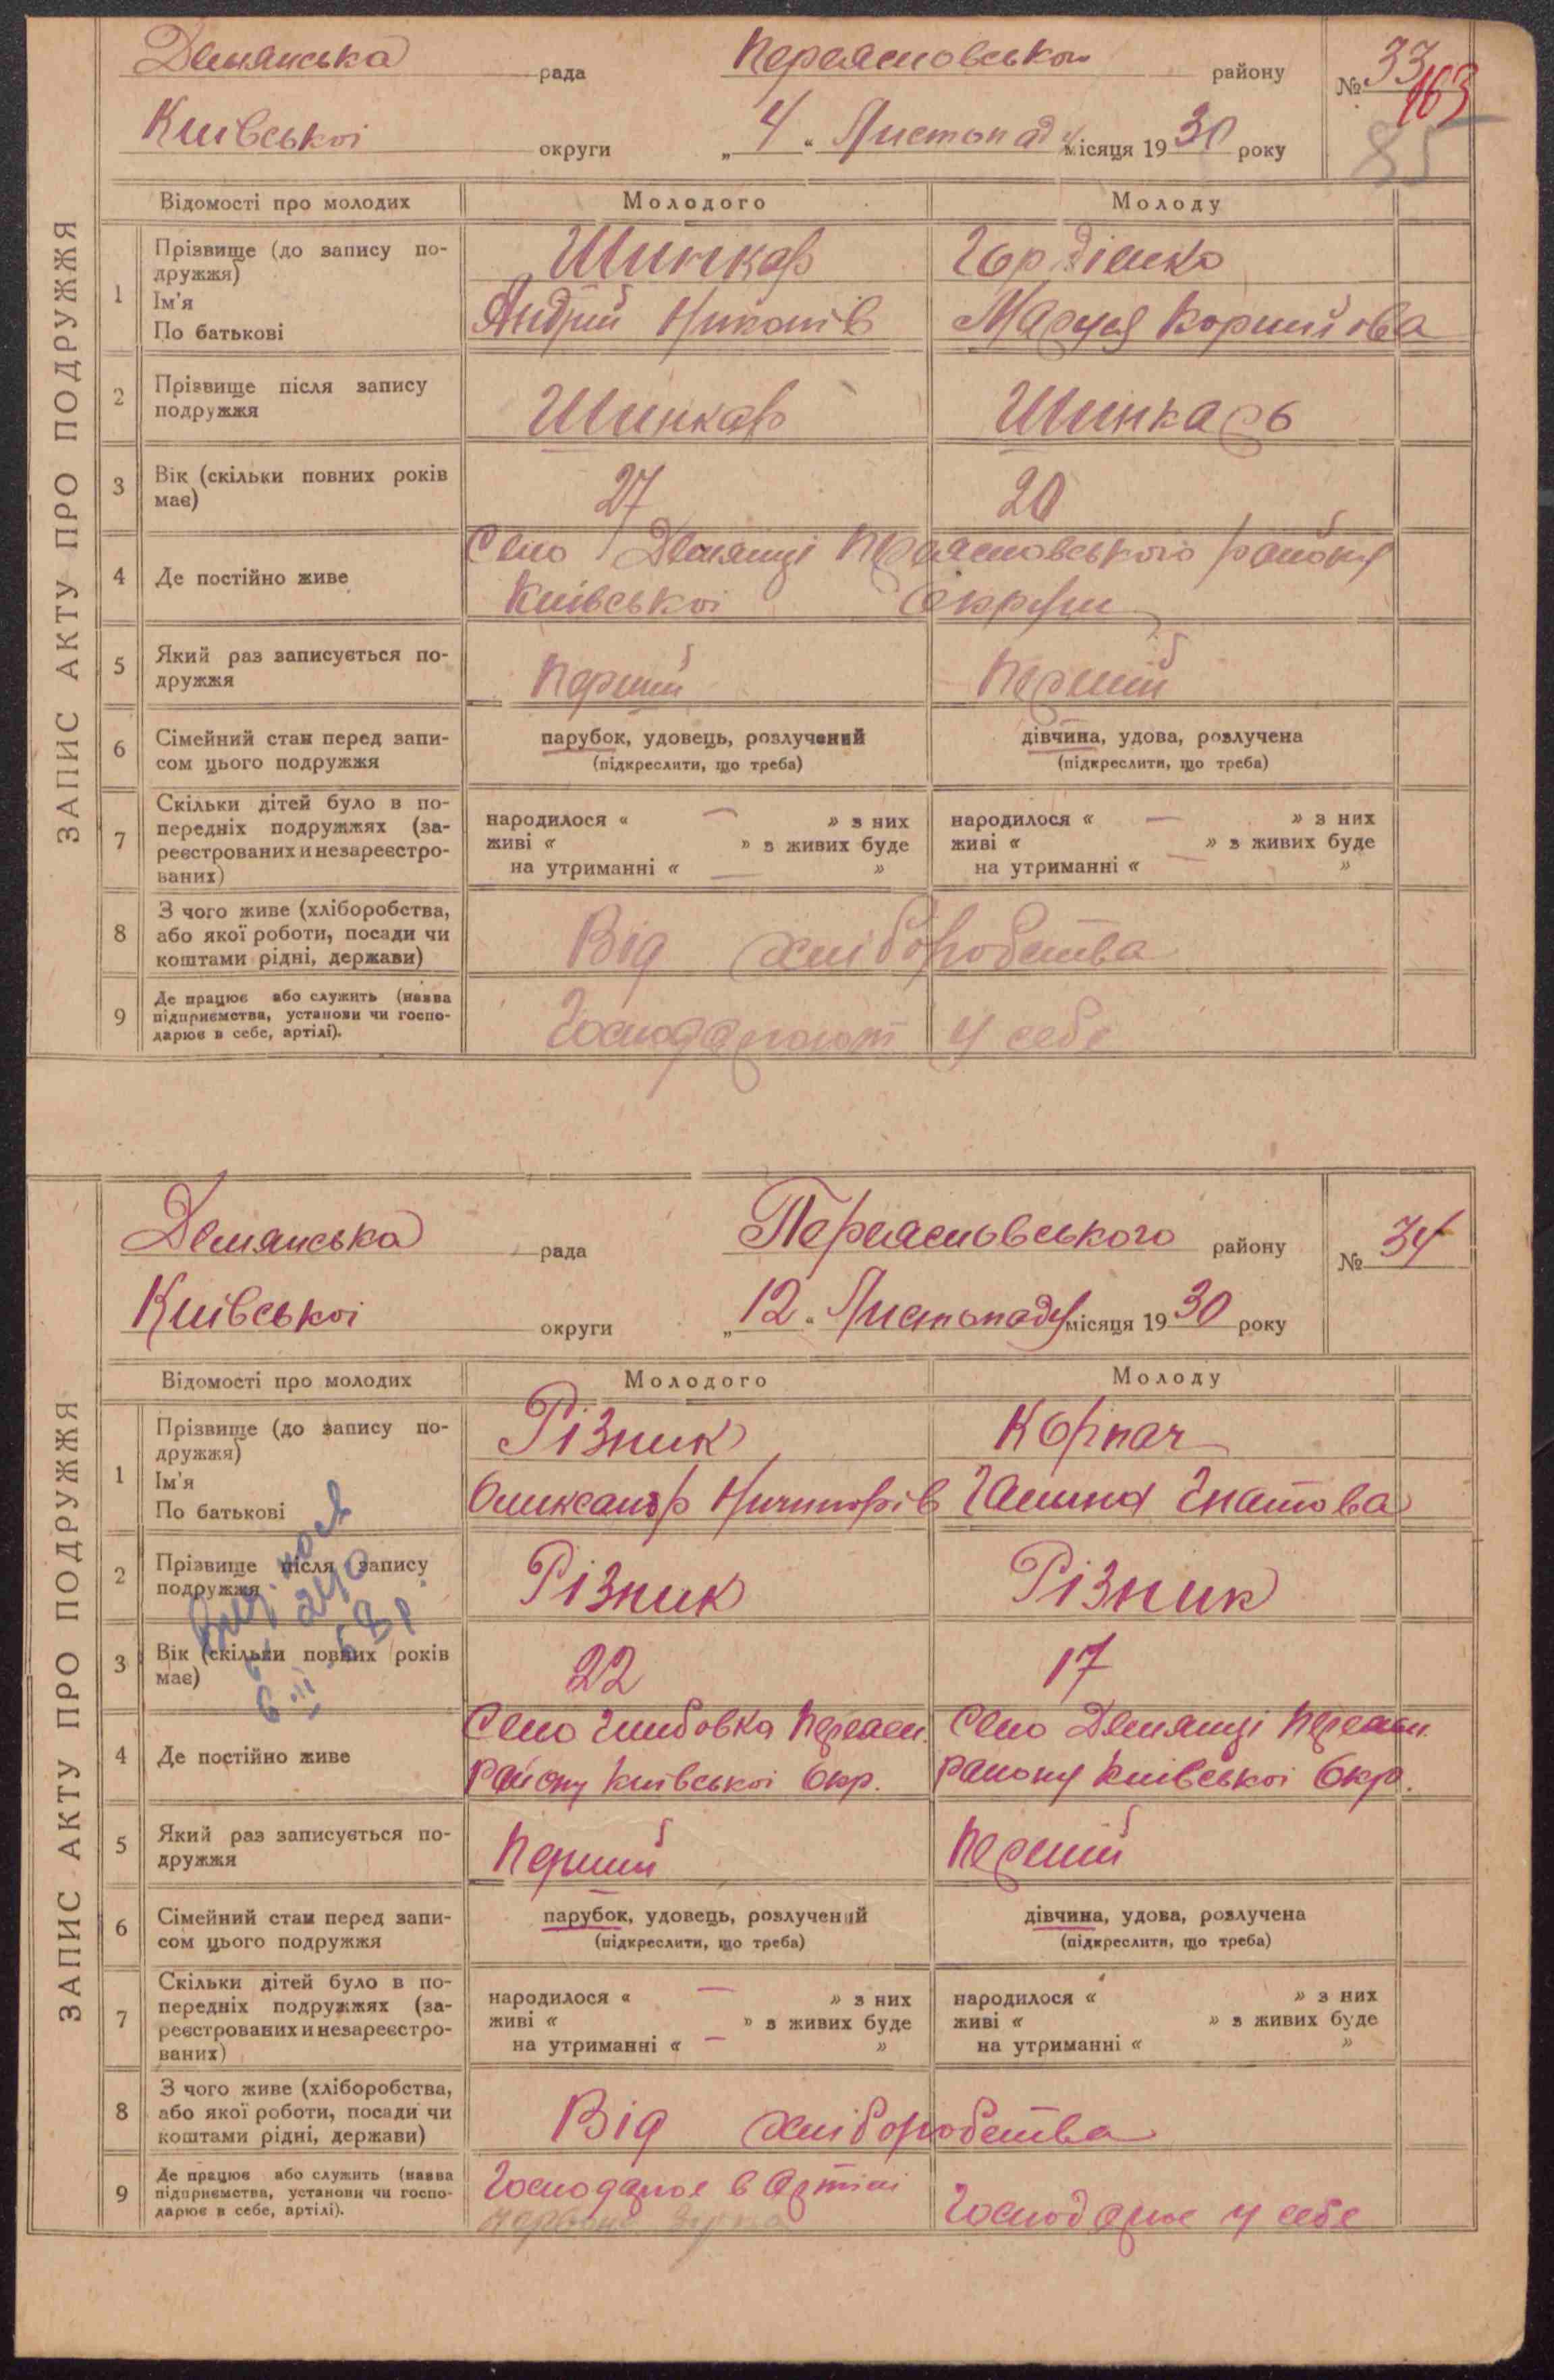 ЗАПИС АКТУ ПРО ПОДРУЖЖЯ
Демянська рада Переясловського району № 33
163
Київської округи „4“ Листопаду місяця 1930 року
85
Відомості про молодих Молодого Молоду
1 Прізвище (до запису по-
дружжя)
Ім'я
По батькові
Шинкар Гордіенко
Андрій Никонів Маруся Корнийова
2 Прізвище після запису
подружжя
Шинкар Шинкарь
3 Вік (скільки повних років
має)
27 20
4 Де постійно живе
Село Демянці Переясловського району
Київської Округи
5 Який раз записується по-
дружжя
Перший Перший
6 Сімейний стан перед запи-
сом цього подружжя
парубок, удовець, розлучений дівчина, удова, розлучена
(підкреслити, що треба) (підкреслити, що треба)
7 Скільки дітей було в по-
передніх подружжях (за-
реєстрованих и незареєстро-
ваних)
народилося « — » з них народилося « — » з них
живі « » з живих буде живі « » з живих буде
на утриманні « — » на утриманні « — »
8 З чого живе (хліборобства,
або якої роботи, посади чи
коштами рідні, держави)
Від хліборобства
9 Де працює або служить (назва
підприємства, установи чи госпо-
дарює в себе, артілі).
Господарюют у себе
ЗАПИС АКТУ ПРО ПОДРУЖЖЯ
Демянська рада Переясловського району № 34
Київської округи „12“ Листопаду місяця 1930 року
Відомості про молодих Молодого Молоду
1 Прізвище (до запису по-
дружжя)
Ім'я
По батькові
Різник Корпач
Олександр Ничипорів Галина Гнатова
2 Прізвище після запису
подружжя
Різник Різник
3 Вік (скільки повних років
має)
22 17
4 Де постійно живе
Село Гимбовка Переясл. Село Демянці Переясл.
Району Київської Окр. Району Київської Окр.
5 Який раз записується по-
дружжя
Перший Перший
6 Сімейний стан перед запи-
сом цього подружжя
парубок, удовець, розлучений дівчина, удова, розлучена
(підкреслити, що треба) (підкреслити, що треба)
7 Скільки дітей було в по-
передніх подружжях (за-
реєстрованих и незареєстро-
ваних)
народилося « — » з них народилося « » з них
живі « » з живих буде живі « » з живих буде
на утриманні « — » на утриманні « »
8 З чого живе (хліборобства,
або якої роботи, посади чи
коштами рідні, держави)
Від хліборобства
9 Де працює або служить (назва
підприємства, установи чи госпо-
дарює в себе, артілі).
Господарює в Артілі
Господарює у себе